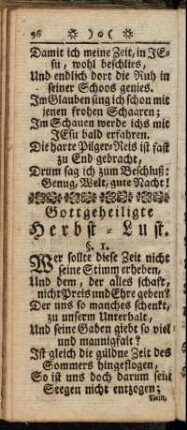 96 )o(
Damit ich meine Zeit, in JE-
su, wohl beschlies,
Und endlich dort die Ruh in
seiner Schoos genies.
Im Glauben sing ich schon mit
jenen frohen Schaaren;
Im Schauen werde ichs mit
JEsu bald erfahren.
Die harte Pilger-Reis ist fast
zu End gebracht,
Drum sag ich zum Beschluß:
Genug, Welt, gute Nacht!
Gottgeheiligte
Herbst-Lust.
§. 1.
Wer sollte diese Zeit nicht
seine Stimm erheben,
Und dem, der alles schaft,
nicht Preis und Ehre geben?
Der uns so manches schenkt,
zu unserm Unterhalt,
Und seine Gaben giebt so viel
und mannigfalt?
Ist gleich die güldne Zeit des
Sommers hingeflogen,
So ist uns doch darum sein
Seegen nicht entzogen;
Nein,